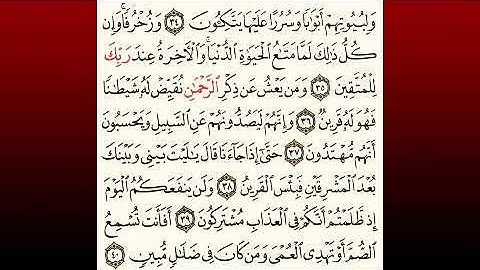 وَلِبُيُوتِهِمْ أَبْوَابًا وَسُرُرًا عَلَيْهَا يَتَّكِـُٔونَ ٣٤ وَزُخْرُفًا ۚ وَإِن
كُلُّ ذَٰلِكَ لَمَّا مَتَـٰعُ ٱلْحَيَوٰةِ ٱلدُّنْيَا ۚ وَٱلْـَٔاخِرَةُ عِندَ رَبِّكَ
لِلْمُتَّقِينَ ٣٥ وَمَن يَعْشُ عَن ذِكْرِ ٱلرَّحْمَـٰنِ نُقَيِّضْ لَهُۥ شَيْطَـٰنًا
فَهُوَ لَهُۥ قَرِينٌ ٣٦ وَإِنَّهُمْ لَيَصُدُّونَهُمْ عَنِ ٱلسَّبِيلِ وَيَحْسَبُونَ
أَنَّهُم مُّهْتَدُونَ ٣٧ حَتَّىٰٓ إِذَا جَآءَنَا قَالَ يَـٰلَيْتَ بَيْنِى وَبَيْنَكَ
بُعْدَ ٱلْمَشْرِقَيْنِ فَبِئْسَ ٱلْقَرِينُ ٣٨ وَلَن يَنفَعَكُمُ ٱلْيَوْمَ
إِذ ظَّلَمْتُمْ أَنَّكُمْ فِى ٱلْعَذَابِ مُشْتَرِكُونَ ٣٩ أَفَأَنتَ تُسْمِعُ
ٱلصُّمَّ أَوْ تَهْدِى ٱلْعُمْىَ وَمَن كَانَ فِى ضَلَـٰلٍ مُّبِينٍ ٤٠